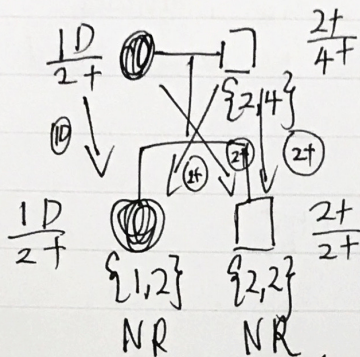 1D
2+
2+
4+
{2,4}
1D
2+
2+
2+
1D
2+
2+
2+
{1,2} {2,2}
NR NR